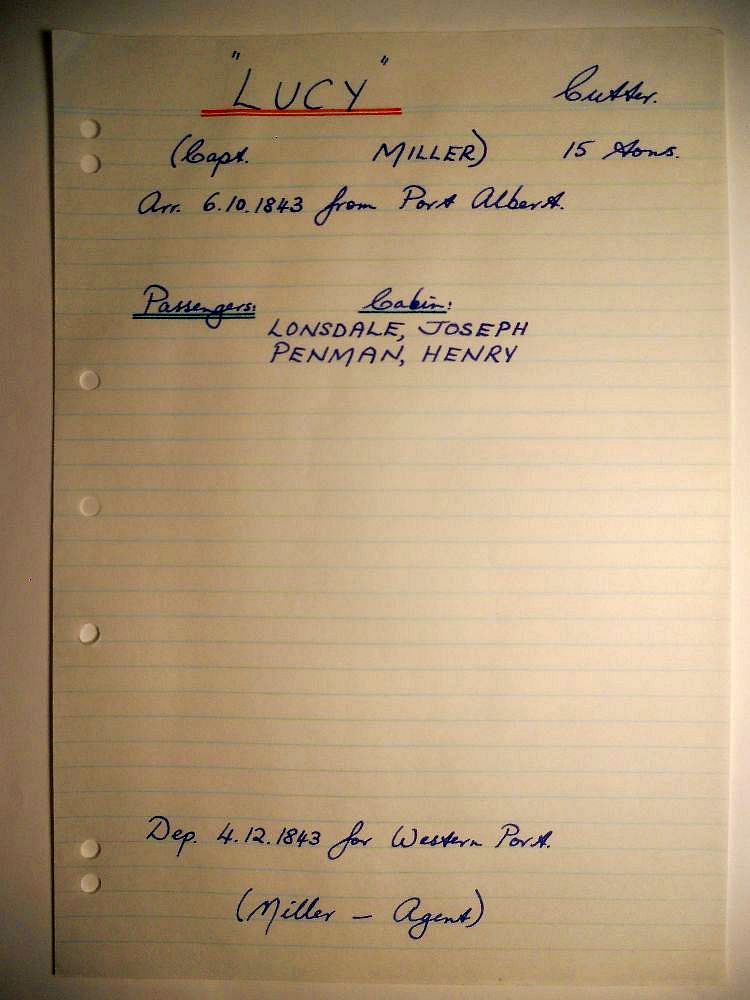 "LUCY" Cutter.
(Capt. MILLER) 15 tons.
Arr. 6.10.1843 from Port Albert.
Passengers: Cabin:
LONSDALE, JOSEPH
PENMAN, HENRY
Dep. 4.12.1843 for Western Port.
(Miller — Agent)